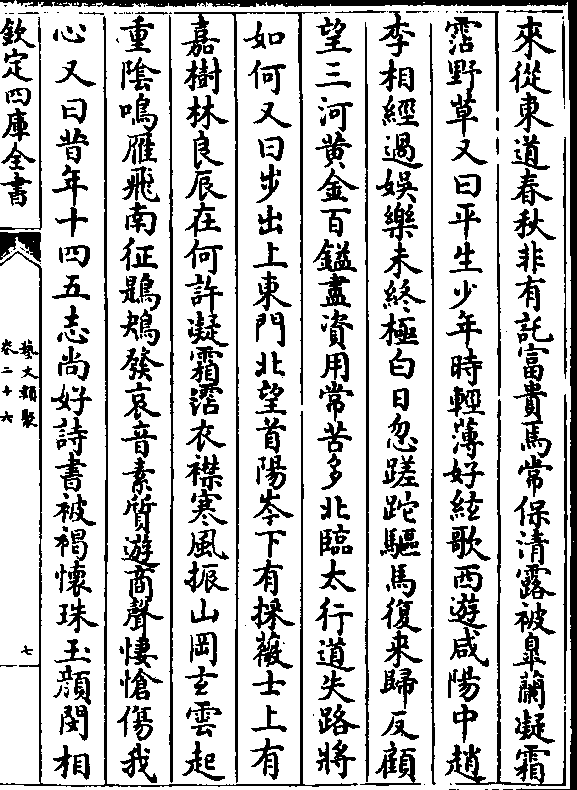 來從東道春秋非有託富貴焉常保清露被臯蘭凝霜
霑野草又曰平生少年時輕薄好絃歌西遊咸陽中趙
李相經過娛樂未終極白日忽蹉跎驅馬復來歸反顧
望三河黄金百鎰盡資用常苦多北臨太行道失路將
如何又曰步出上東門北望首陽岑下有採薇士上有
嘉樹林良辰在何許凝霜霑衣襟寒風振山岡玄雲起
重陰鳴雁飛南征鶗鴂發哀音素質遊商聲悽愴傷我
心又曰昔年十四五志尚好詩書被褐懷珠玉顔閔相
欽定四庫全書
藝文類聚
卷二十六
七